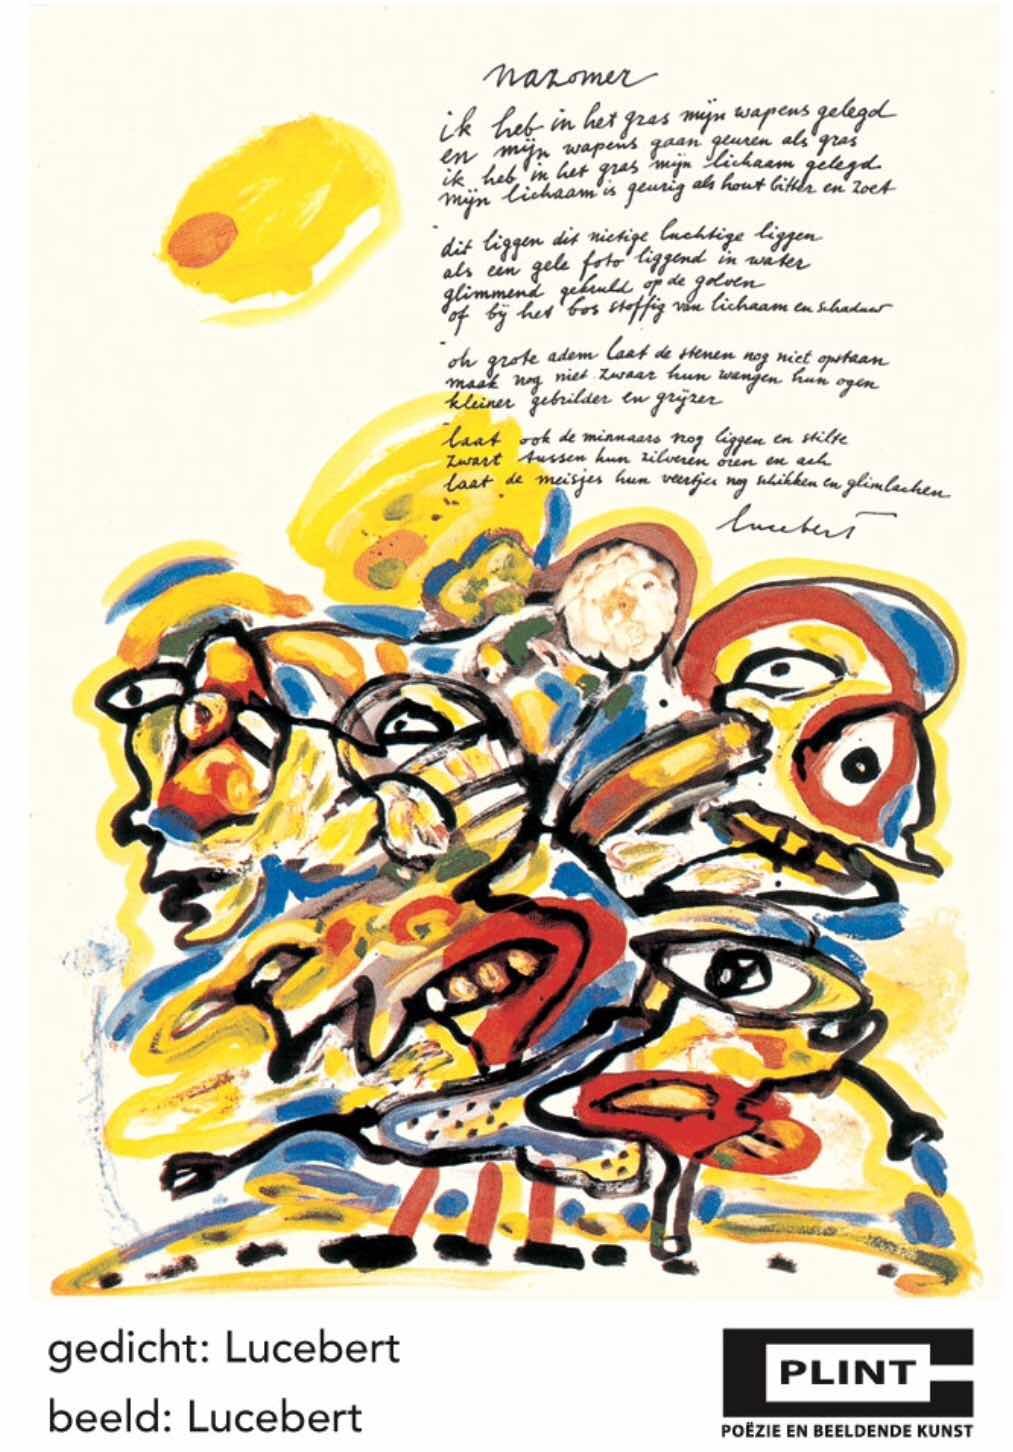 nazomer
ik heb in het gras mijn wapens gelegd
en mijn wapens gaan geuren als gras
ik heb in het gras mijn lichaam gelegd
mijn lichaam is geurig als hout bitter en zoet
dit liggen dit nietige luchtige liggen
als een gele foto liggend in water
glimmend gekruld op de golven
of bij het bos stoffig van lichaam en schaduw
oh grote adem laat de stenen nog niet opstaan
maak nog niet zwaar hun wangen hun ogen
kleiner gebrilder en grijzer
laat ook de minnaars nog liggen en stilte
zwart tussen hun zilveren oren en ach
laat de meisjes hun veertjes nog schikken en glimlachen
Lucebert
gedicht: Lucebert
beeld: Lucebert
PLINT
POËZIE EN BEELDENDE KUNST